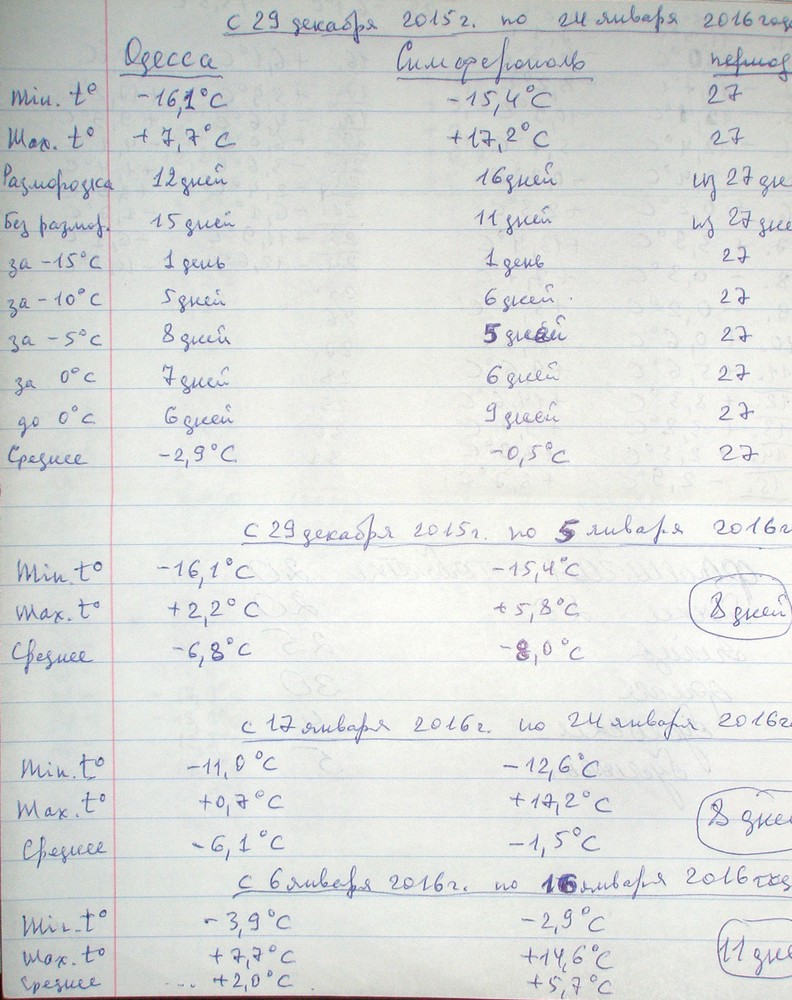 с 29 декабря 2015г. по 24 января 2016 года
Одесса Симферополь период
Min. t° -16,1°C -15,4°C 27
Max. t° +7,7°C +17,2°C 27
Разморозка 12 дней 16 дней из 27 дне
Без размор. 15 дней 11 дней из 27 дне
за -15°C 1 день 1 день 27
за -10°C 5 дней 6 дней 27
за -5°C 8 дней 5 дней 27
за 0°C 7 дней 6 дней 27
до 0°C 6 дней 9 дней 27
Среднее -2,9°C -0,5°C 27
с 29 декабря 2015г. по 5 января 2016г
Min. t° -16,1°C -15,4°C
Max. t° +2,2°C +5,8°C 8 дней
Среднее -6,8°C -8,0°C
с 17 января 2016г. по 24 января 2016г
Min. t° -11,0°C -12,6°C
Max. t° +0,7°C +17,2°C 8 дней
Среднее -6,1°C -1,5°C
с 6 января 2016г. по 16 января 2016 года
Min. t° -3,9°C -2,9°C
Max. t° +7,7°C +14,6°C 11 дне
Среднее ... +2,0°C +5,7°C